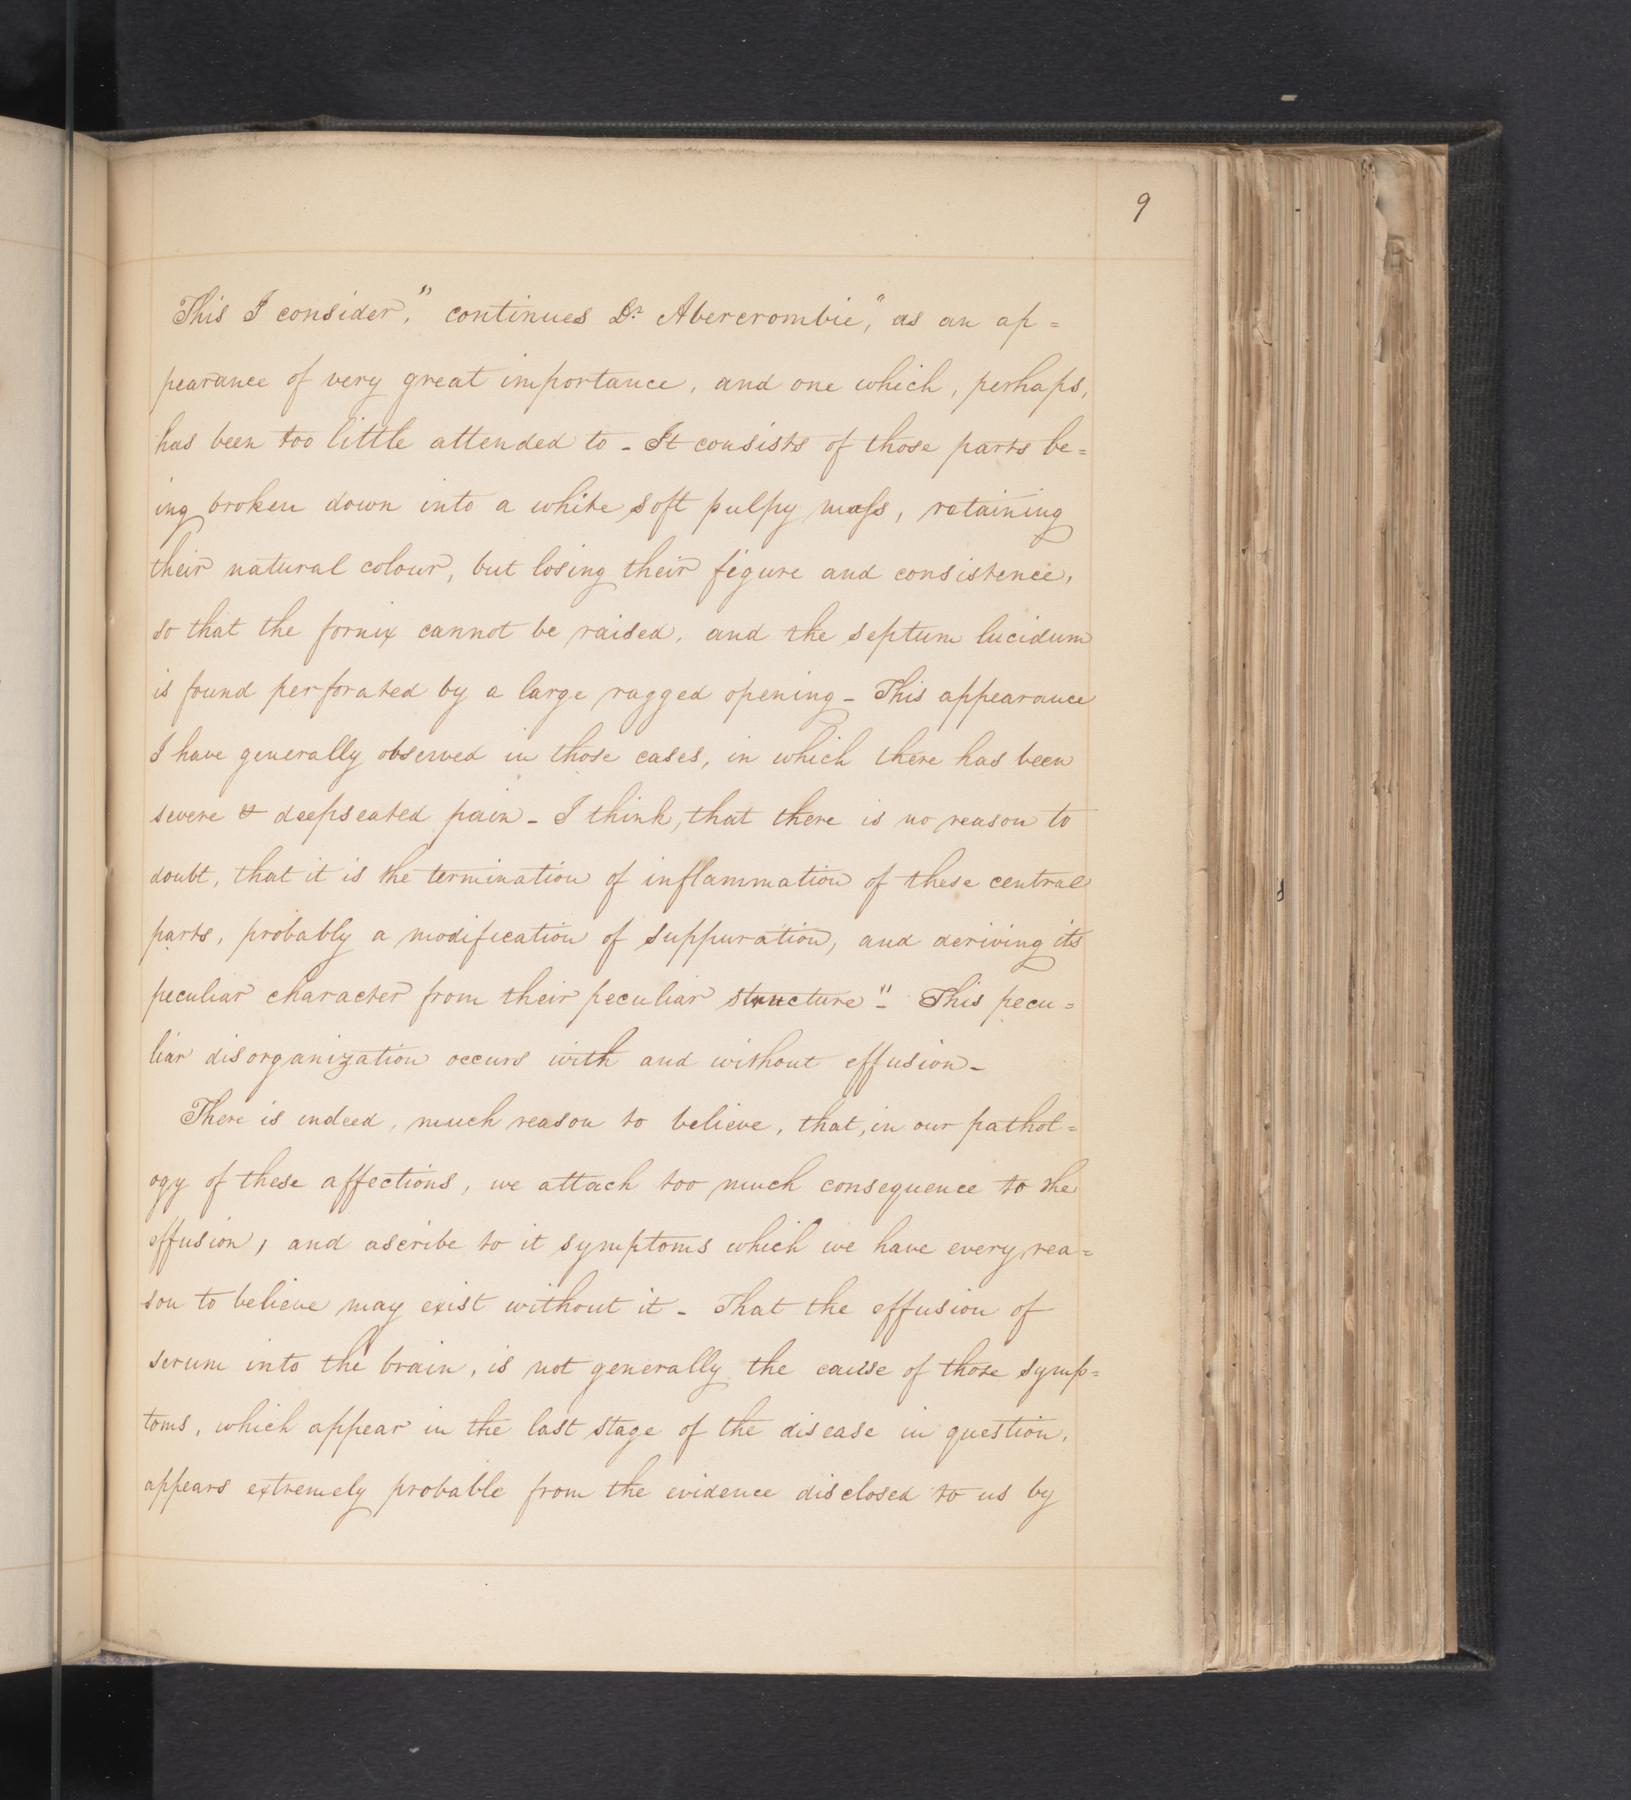 9
This I consider," continues Dr Abercrombie," as an ap=
pearance of very great importance, and one which, perhaps,
has been too little attended to - It consists of those parts be=
ing broken down into a white soft pulpy mass, retaining
their natural colour, but losing their figure and consistence,
so that the fornix cannot be raised, and the septum lucidum
is found perforated by a large ragged opening - This appearance
I have generally observed in those cases, in which there has been
severe & deepseated pain - I think, that there is no reason to
doubt, that it is the termination of inflammation of these central
parts, probably a modification of suppuration, and deriving its
peculiar character from their peculiar structure" - This pecu=
liar disorganization occurs with and without effusion -
There is indeed, much reason to believe, that, in our pathol=
ogy of these affections, we attach too much consequence to the
effusion, and ascribe to it symptoms which we have every rea=
son to believe may exist without it - That the effusion of
serum into the brain, is not generally the cause of those symp=
toms, which appear in the last stage of the disease in question,
appears extremely probable from the evidence disclosed to us by